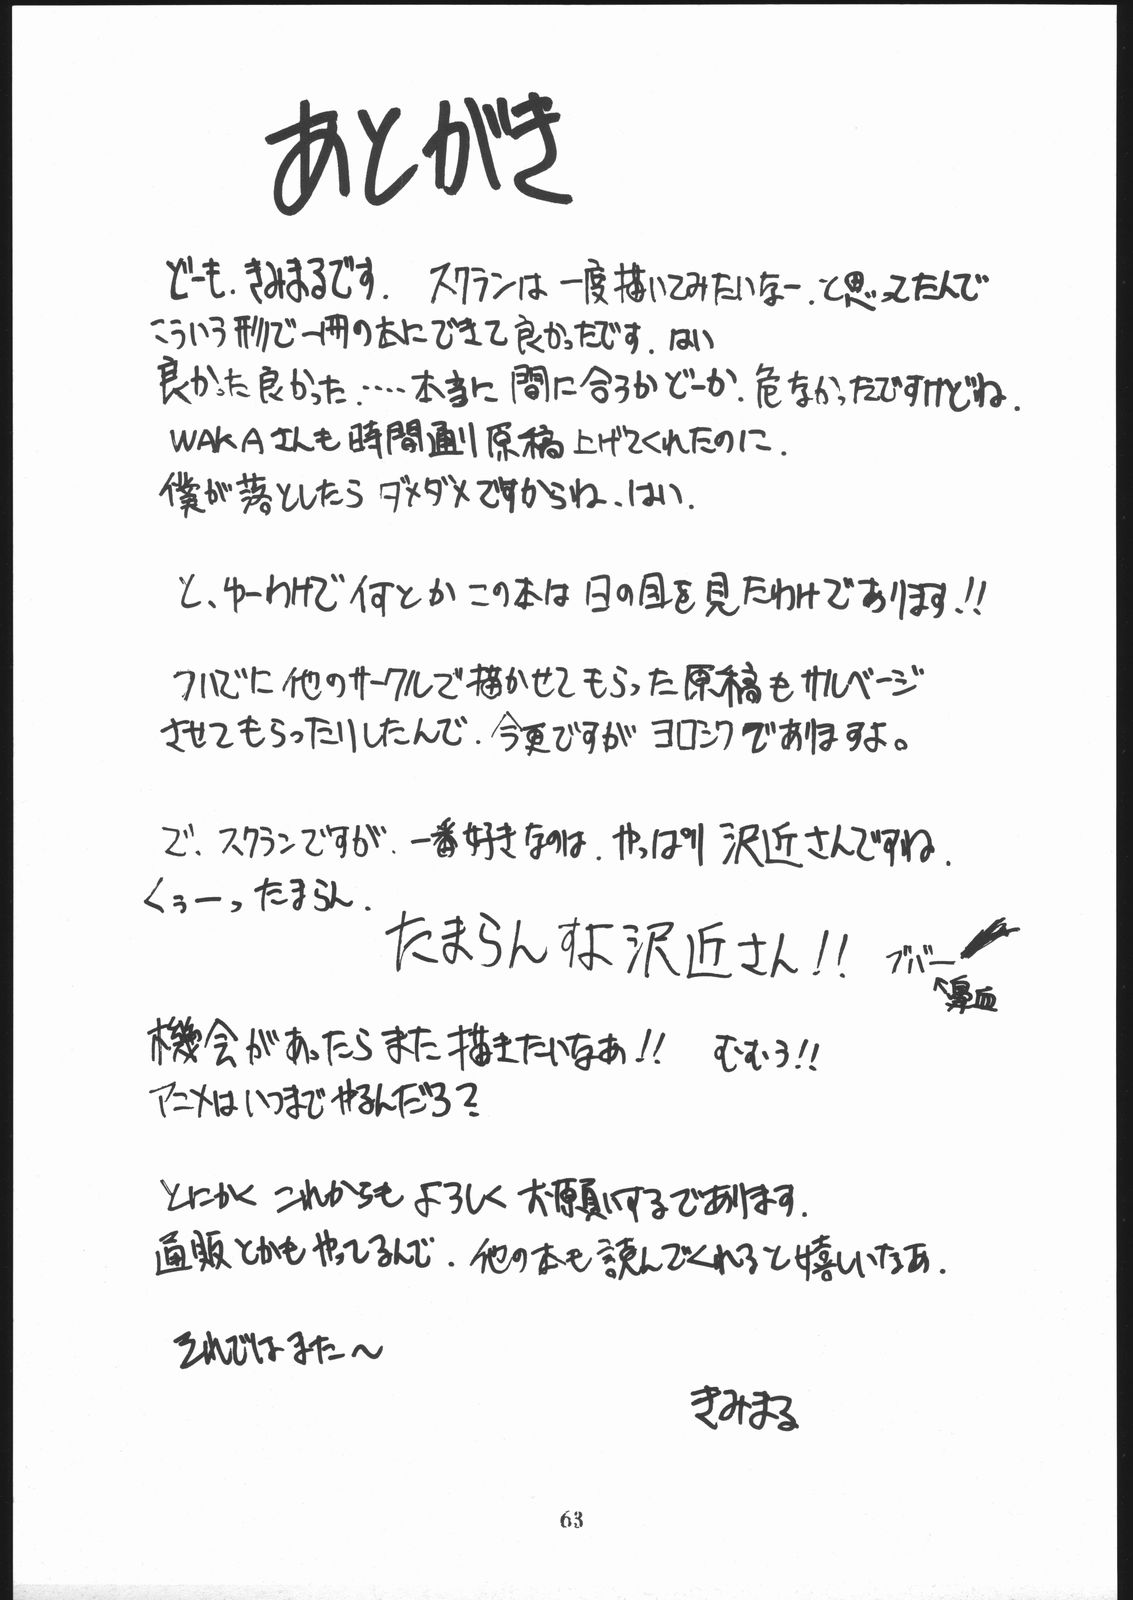 あとがき
どーも、きみまるです。 スクランは一度描いてみたいなー、と思ってたんで
こういう形で一冊の本にできて良かったです、はい
良かった良かった‥‥本当に間に合うかどーか、危なかったですけどね、
WAKAさんも時間通り原稿上げてくれたのに、
僕が落としたらダメダメですからね、はい、
と、ゆーわけで何とかこの本は日の目を見たわけであります!!
ついでに他のサークルで描かせてもらった原稿もサルベージ
させてもらったりしたんで、今更ですがヨロシクでありますよ。
で、スクランですが、一番好きなのは、やっぱり沢近さんですね、
くぅーったまらん、
たまらんすよ沢近さん!! ブバー
↑鼻血
機会があったらまた描きたいなあ!! むむう!!
アニメはいつまでやるんだろ?
とにかくこれからもよろしくお願いするであります、
通販とかもやってるんで、他の本も読んでくれると嬉しいなあ、
それではまた〜
きみまる
63